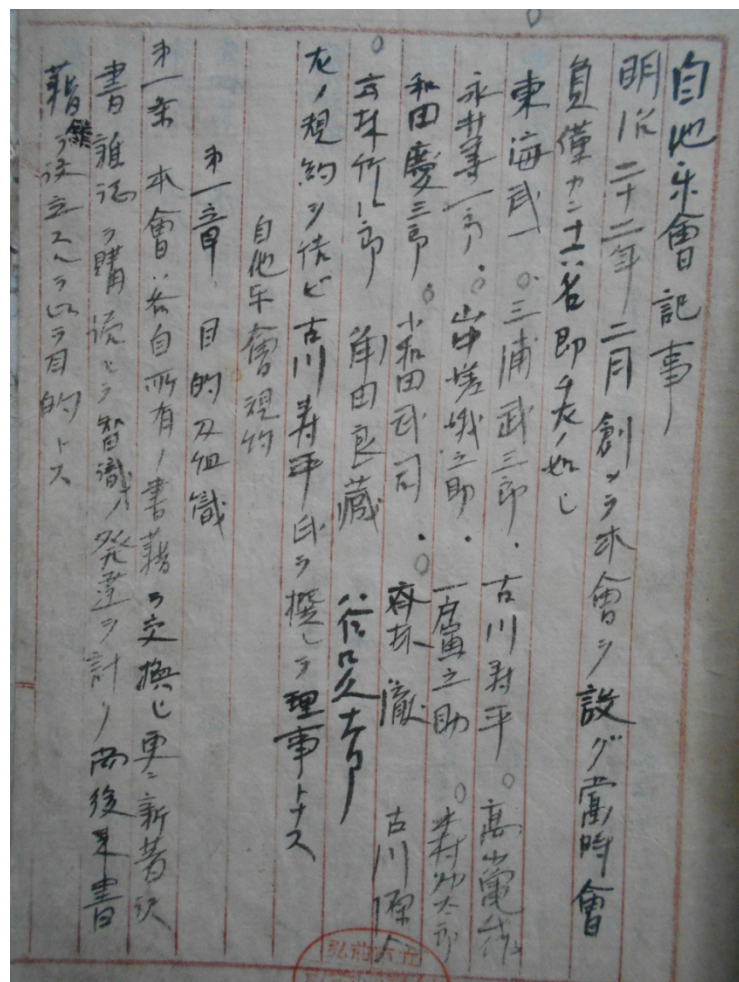 自他楽會記事
明治二十二年二月創メテ本會ヲ設グ當時會
員僅カニ十六名即チ左ノ如し
東海武一。三浦武三郎・古川寿平。高山亀
永井 一郎・。山中嵯峨之助・一戸寅之助。
和田慶三郎。小和田武司・。齊林 古川
。 郎 角田良藏 谷口久吉郎
左ノ規約ヲ結ビ古川寿平氏ヲ撰シテ理事トナス
自他楽會規約
第一章 目的及組織
第一条 本會ハ各自所有ノ書籍ヲ交換し更ニ新著
書雑誌ヲ購読シテ智識ノ発達ヲ計リ向後書
籍舘ヲ設立スルヲ以テ目的トス